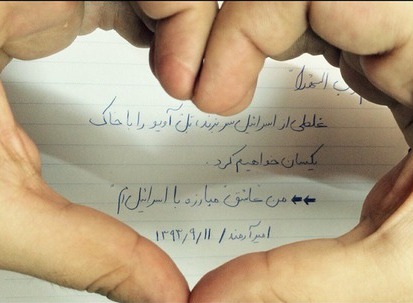 رب الشهدا
غلطی از اسرائیل سر بزند، تل آویو را با خاک
یکسان خواهیم کرد.
←← من عاشق مبارزه با اسرائیل ام
امیر آرمند / ۱۳۹۲/۹/۱۱